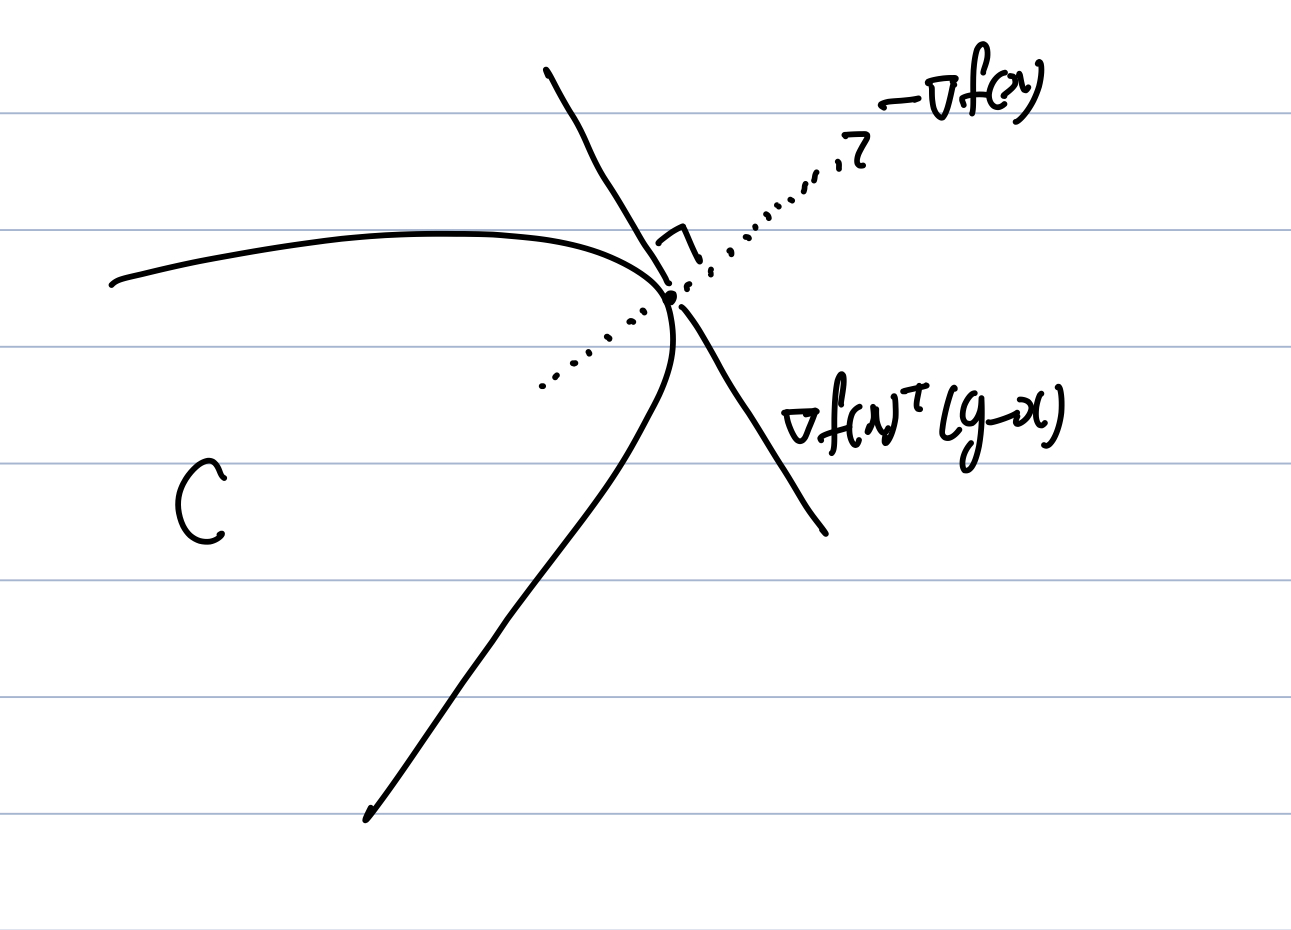 -∇f(x)
∇f(x)ᵀ(y-x)
C